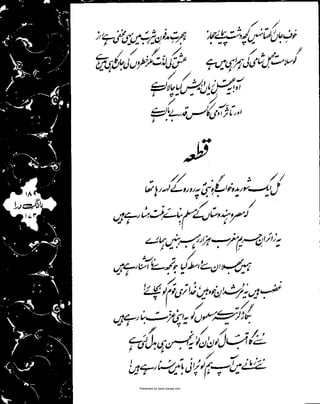 خوف جاں رکھتا نہیں کچھ دشت پیمائے حجاز
ہجرت مدفون یثرب میں یہی مخفی ہے راز
گو سلامت محمل شامی کی ہمراہی میں ہے
عشق کی لذت مگر خطروں کی جاں کاہی میں ہے
آہ! یہ عقل زیاں اندیش کیا چالاک ہے
اور تاثر آدمی کا کس قدر بے باک ہے
قطعہ
کل ایک شوریدہ خواب گاہ نبیؐ پہ رو رو کے کہہ رہا تھا
کہ مصر و ہندوستاں کے مسلم بنائے ملت مٹا رہے ہیں
یہ زائران حریم مغرب ہزار رہبر بنیں ہمارے
ہمیں بھلا ان سے واسطہ کیا جو تجھ سے نا آشنا رہے ہیں
غضب ہیں یہ مرشدان خود بیں، خدا تری قوم کو بچائے!
بگاڑ کر تیرے مسلموں کو یہ اپنی عزت بنا رہے ہیں
سنے گا اقبال کون ان کو، یہ انجمن ہی بدل گئی ہے
نئے زمانے میں آپ ہم کو پرانی باتیں سنا رہے ہیں!
۱۸۲
بانگ درا
۱۷۳
Presented by www.ziaraat.com